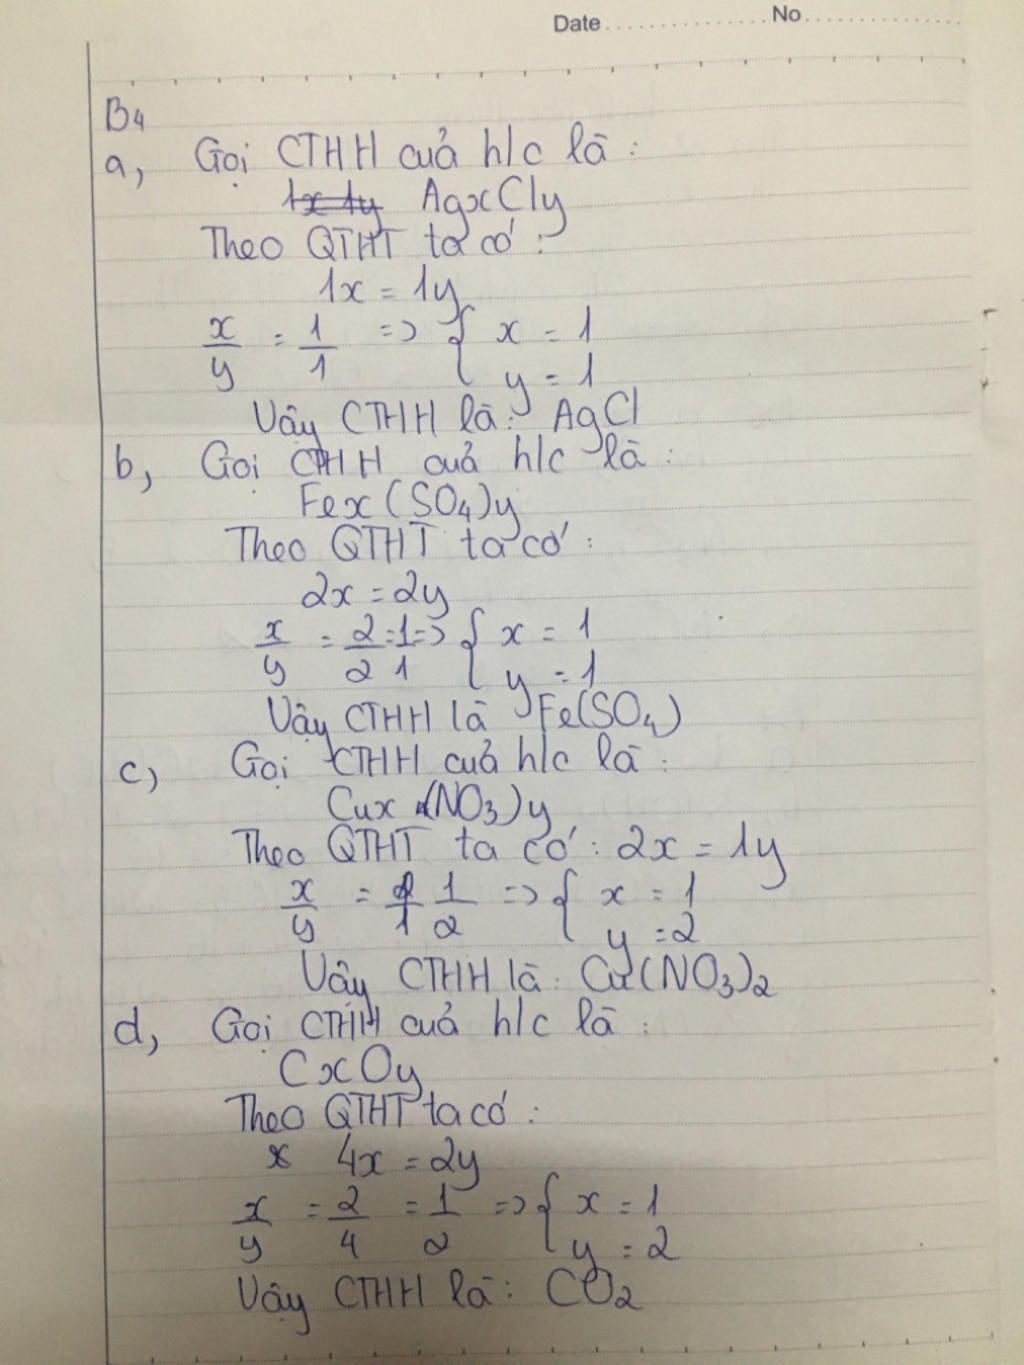 Date.................No................
B4
a, Gọi CTHH cuả h/c là :
1x 1y AgxCly
Theo QTHT ta có :
1x = 1y
x/y = 1/1 => { x = 1
y = 1
Vậy CTHH là: AgCl
b, Gọi CTHH cuả h/c là :
Fex(SO4)y
Theo QTHT ta có :
2x = 2y
x/y = 2/2 = 1/1 => { x = 1
y = 1
Vậy CTHH là Fe(SO4)
c, Gọi CTHH cuả h/c là :
Cux (NO3)y
Theo QTHT ta có : 2x = 1y
x/y = 1/2 => { x = 1
y = 2
Vậy CTHH là : Cu(NO3)2
d, Gọi CTHH cuả h/c là :
CxOy
Theo QTHT ta có :
x 4x = 2y
x/y = 2/4 = 1/2 => { x = 1
y = 2
Vậy CTHH là : CO2